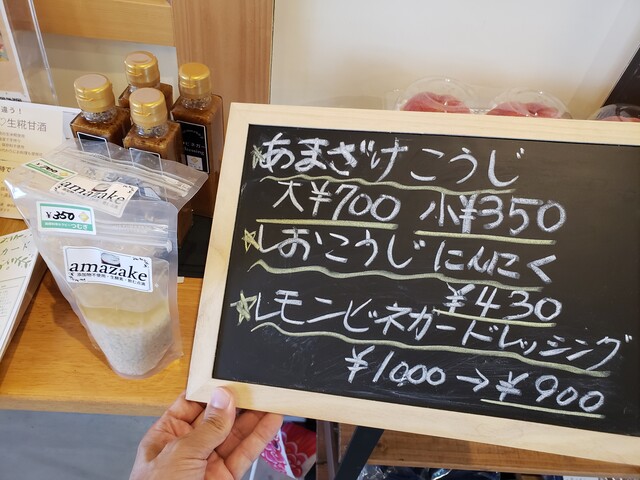 違う！
生糀甘酒
¥700
amazake
¥350
つむぎ
amazake
☆あまざけこうじ
大¥700 小¥350
☆しおこうじにんにく
¥430
☆レモンビネガードレッシング
¥1000→¥900